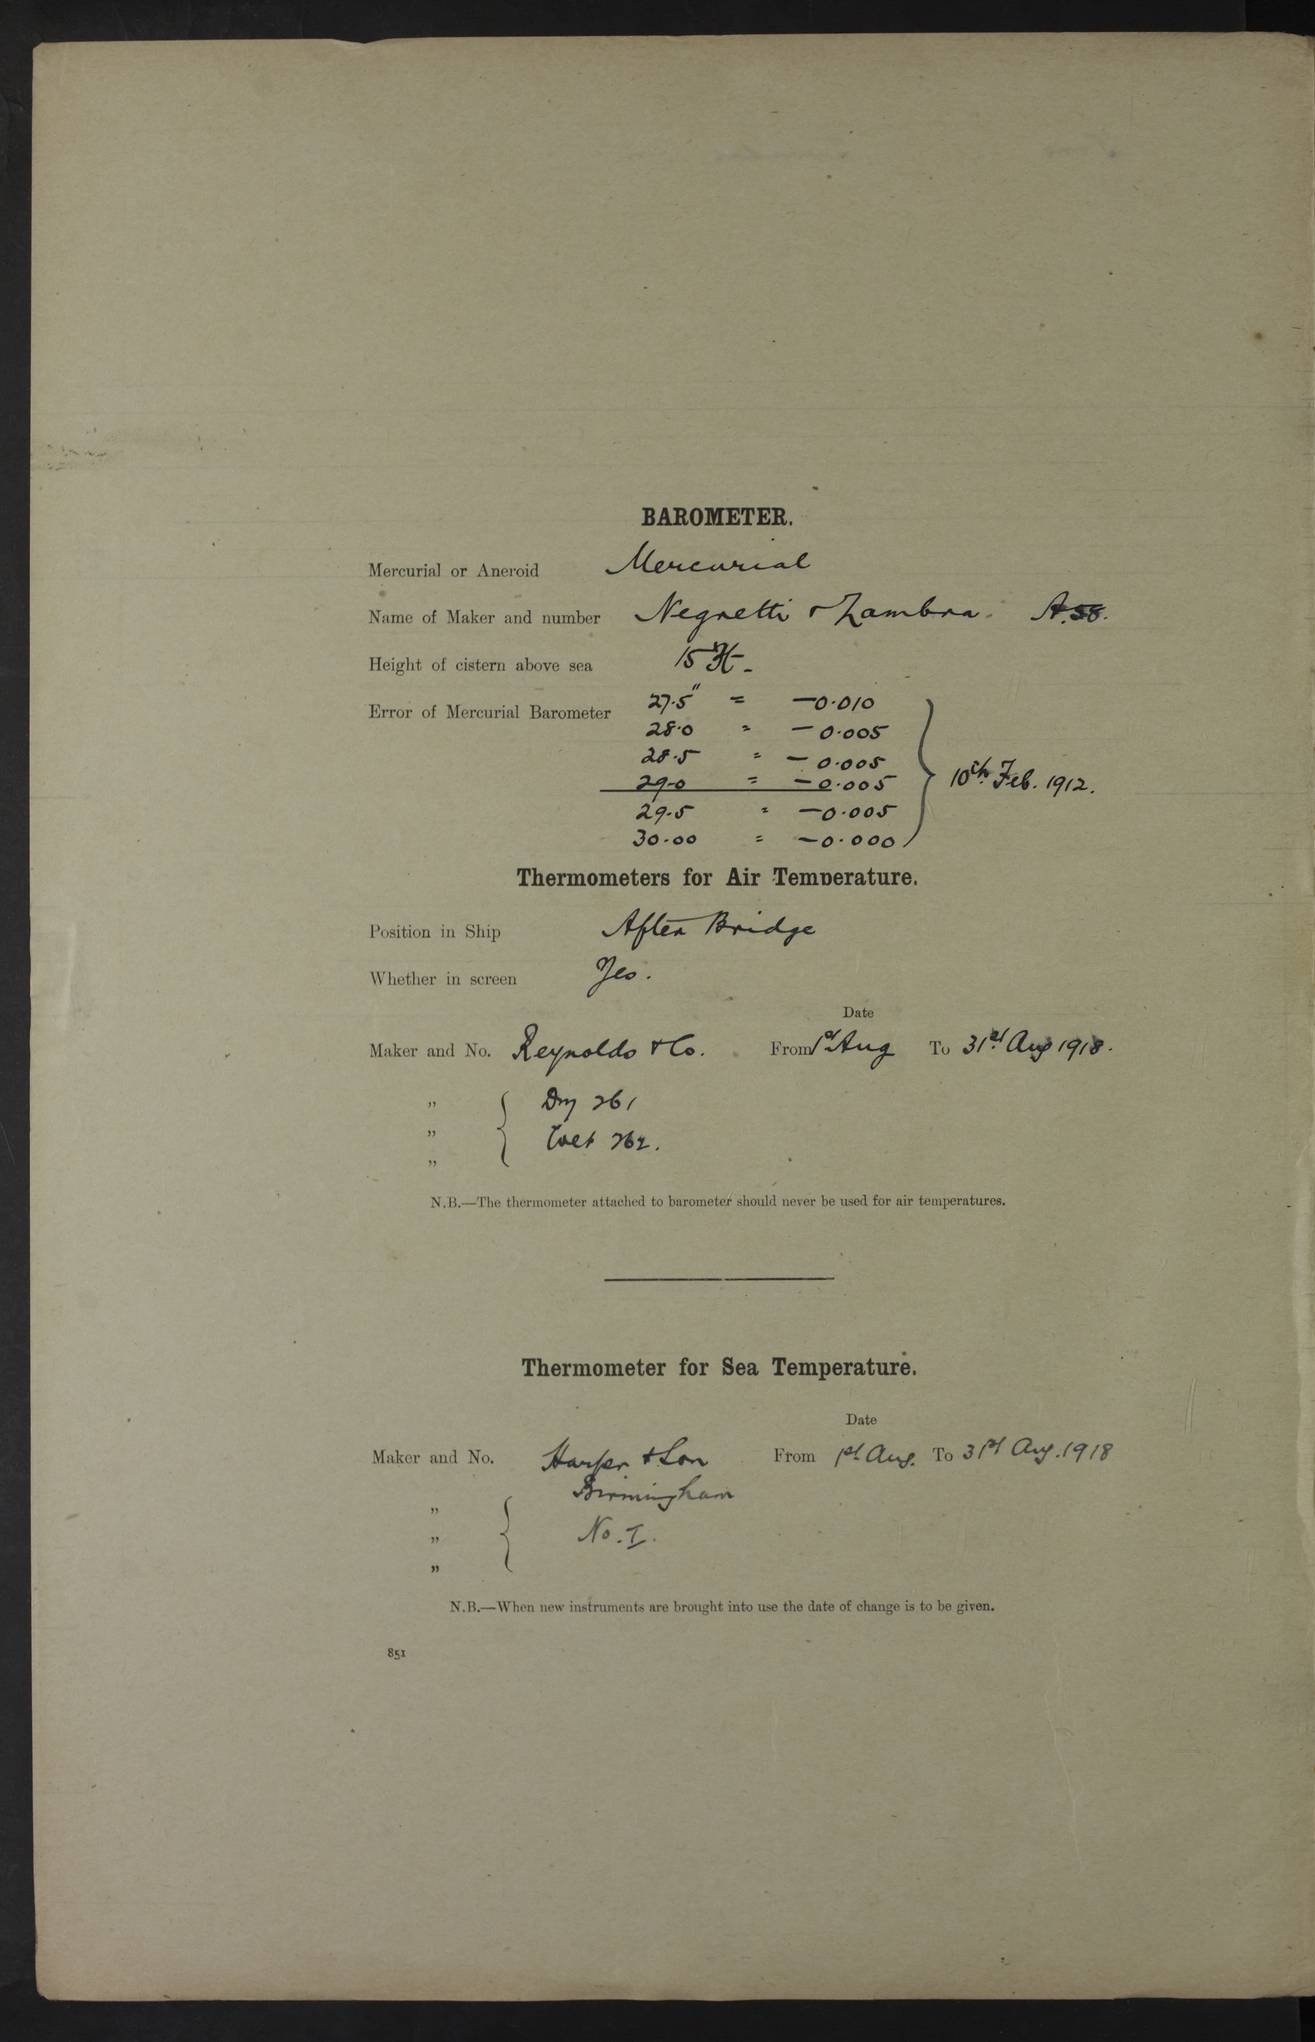 BAROMETER.
Mercurial or Aneroid Mercurial
Name of Maker and number Negretti & Zambra. A.58.
Height of cistern above sea 15 ft.
Error of Mercurial Barometer 27.5" = -0.010
28.0 = -0.005
28.5 = -0.005
29.0 = -0.005 10th Feb. 1912.
29.5 = -0.005
30.00 = -0.000
Thermometers for Air Temperature.
Position in Ship After Bridge
Whether in screen Yes.
Date
Maker and No. Reynolds & Co. From 1st Aug To 31st Aug 1918.
„ Dry 261
„ Wet 262.
„
N.B.—The thermometer attached to barometer should never be used for air temperatures.
Thermometer for Sea Temperature.
Date
Maker and No. Harper & Son From 1st Aug. To 31st Aug. 1918
Birmingham
„
„ No. I.
„
N.B.—When new instruments are brought into use the date of change is to be given.
851